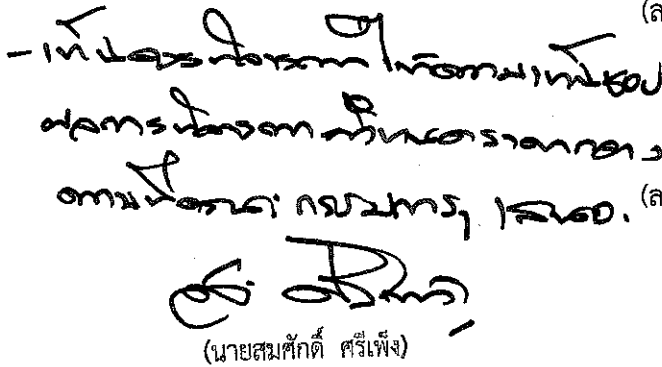 (ล
- เห็นควรพิจารณาให้ความเห็นชอบ
ผลการพิจารณากำหนดราคากลาง
ตามที่คณะกรรมการฯ เสนอ. (ล
(นายสมศักดิ์ ศรีเพ็ง)